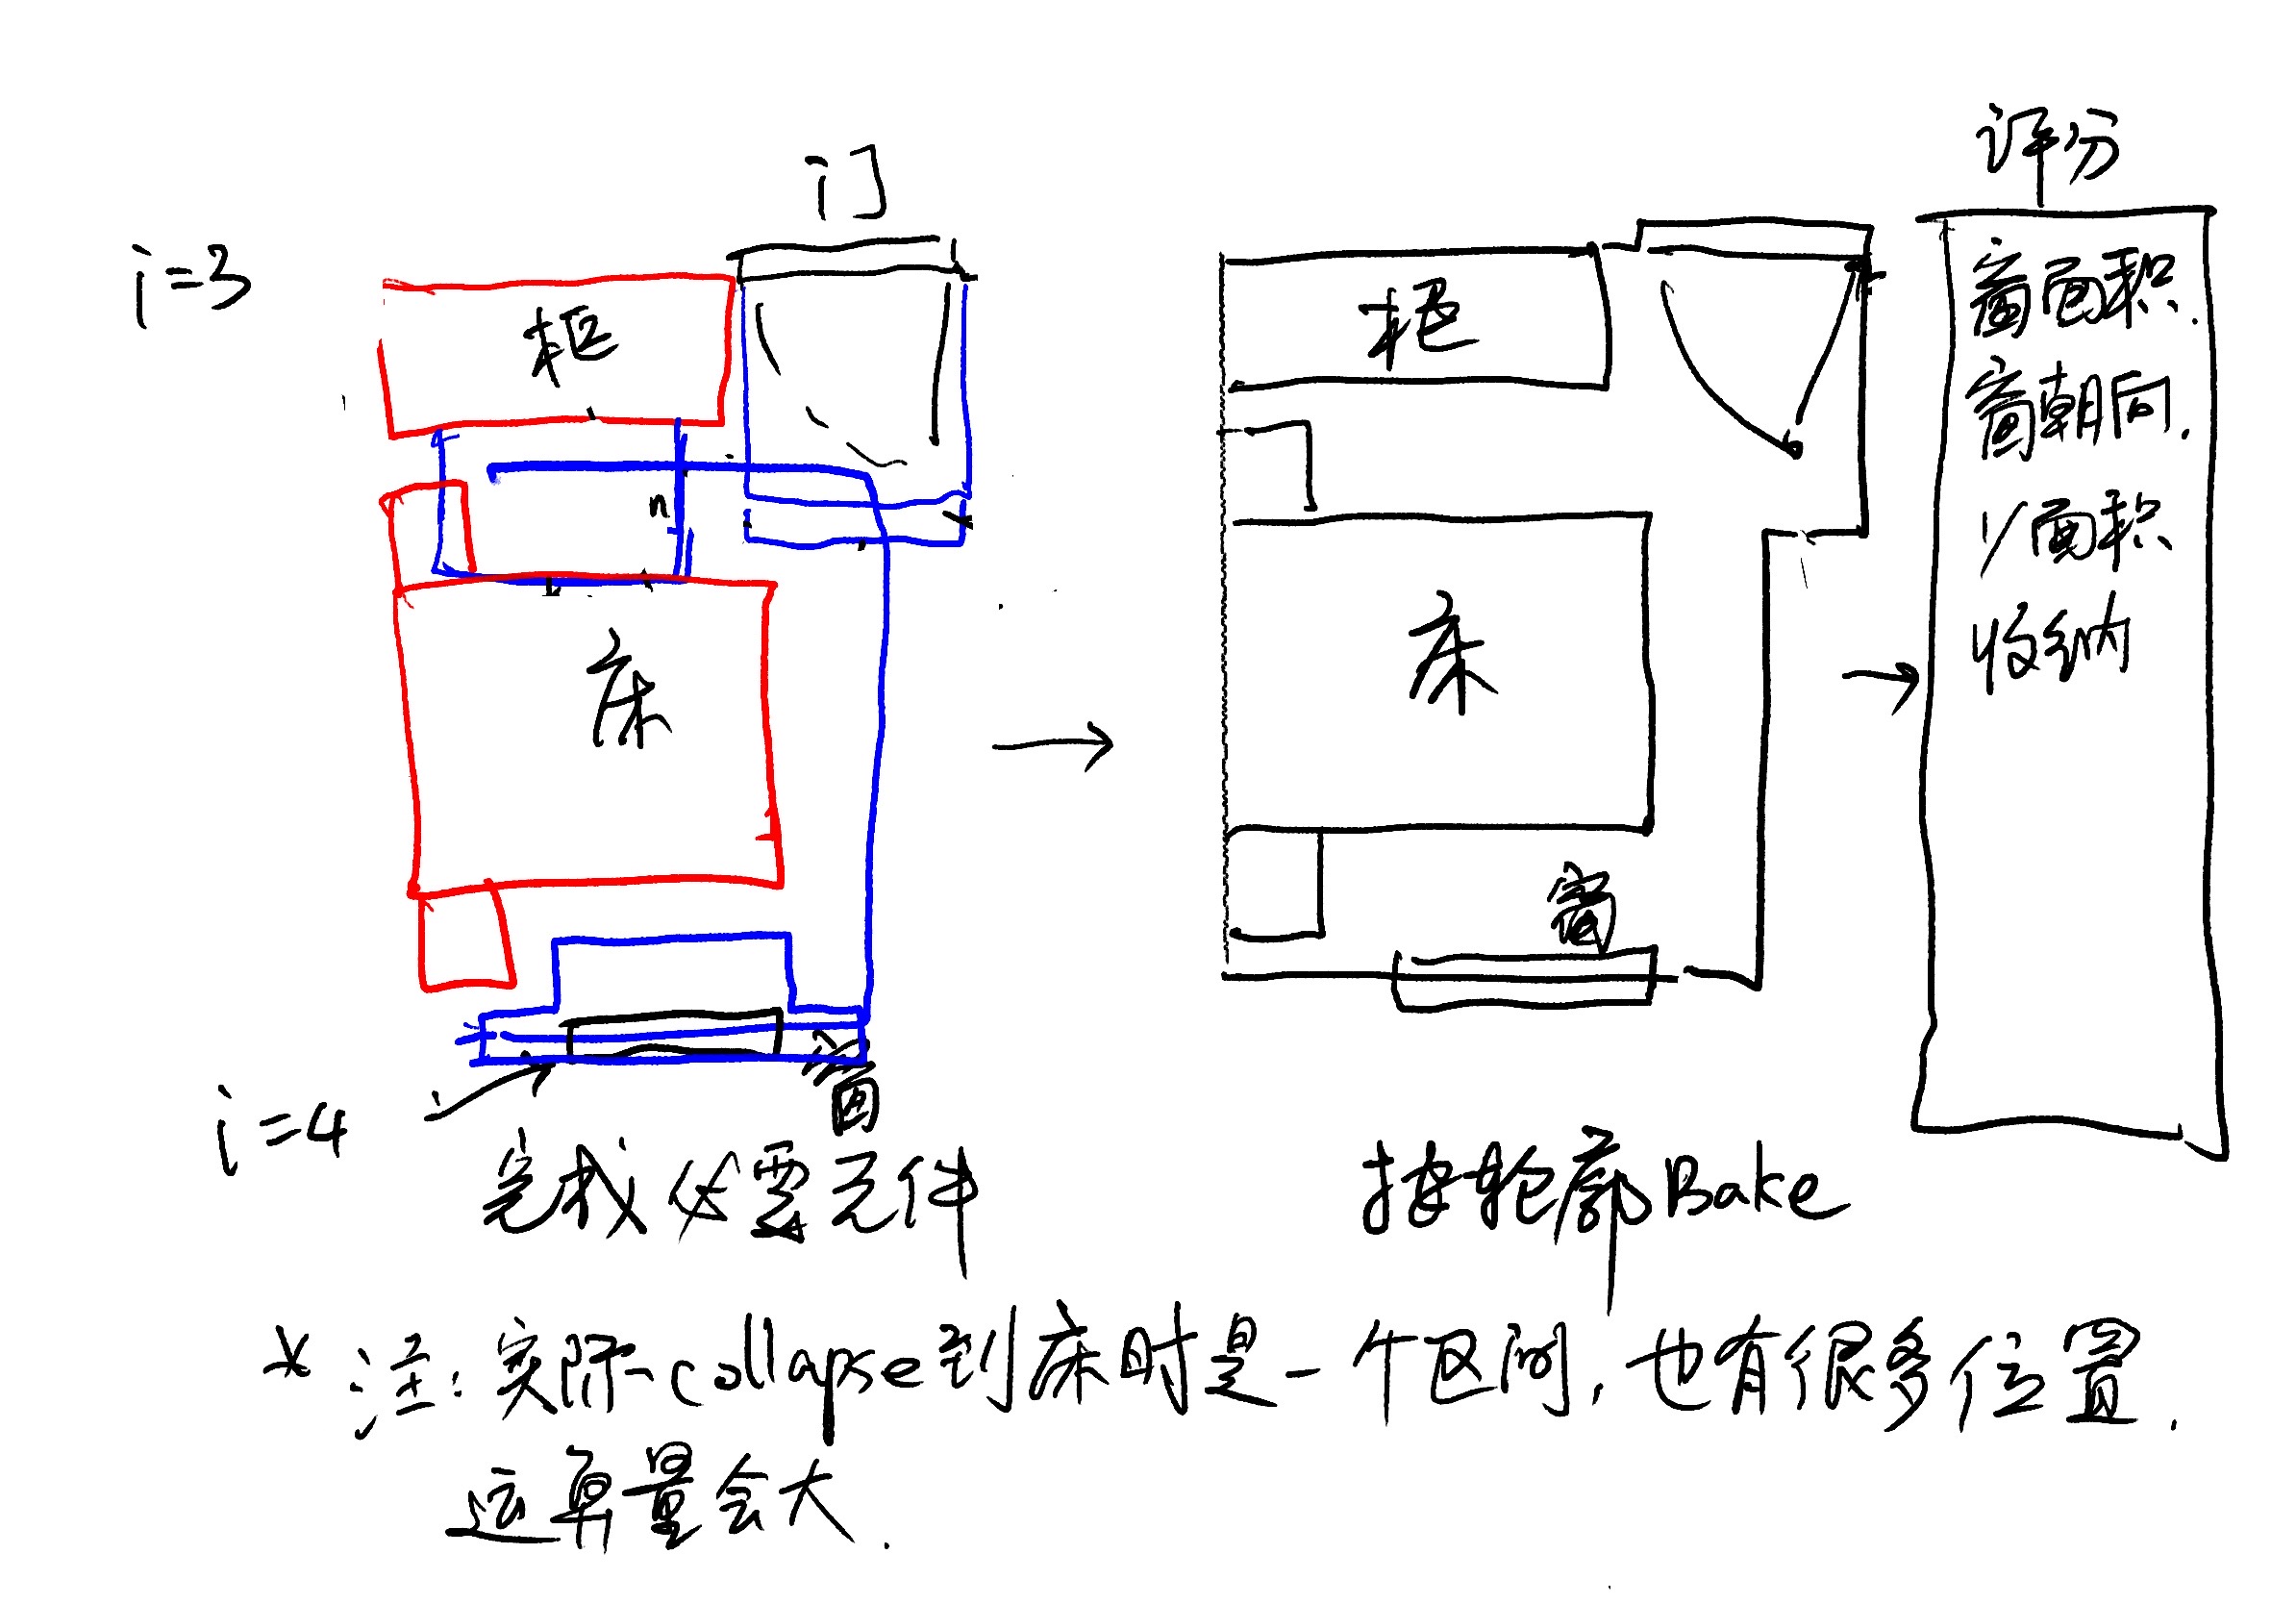 评分
门
i=3
柜
n
床
i=4
窗
完成必要元件
柜
床
窗
按轮廓Bake
窗面积.
窗朝向.
1/面积
收纳
* 注:实际collapse到床时是一个区间,也有很多位置.
运算量会大.